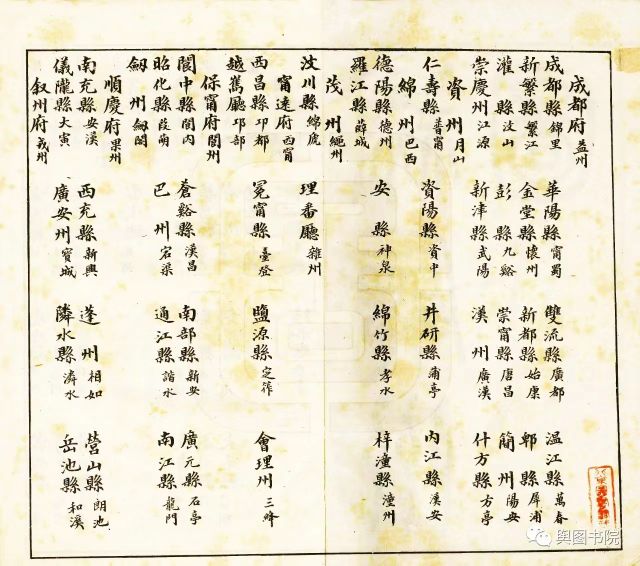 成都府 益州
成都縣 錦里 華陽縣 甯蜀 雙流縣 廣都 温江縣 萬春
新繁縣 繁江 金堂縣 懷州 新都縣 始康 郫縣 犀浦
灌縣 汶山 彭縣 九谿 崇甯縣 唐昌 簡州 陽安
崇慶州 江源 新津縣 武陽 漢州 廣漢 什方縣 方亭
資州 月山
仁壽縣 普甯 資陽縣 資中 井研縣 蒲亭 内江縣 漢安
綿州 巴西
德陽縣 德州 安縣 神泉 綿竹縣 孝水 梓潼縣 潼州
羅江縣 薛城
茂州 繩州
汶川縣 綿虒 理番廳 維州
甯遠府 西甯
西昌縣 邛都 冕甯縣 臺登 鹽源縣 定筰 會理州 三絳
越嶲廳 邛部
保甯府 閬州
閬中縣 閬内 蒼谿縣 漢昌 南部縣 新安 廣元縣 石亭
昭化縣 葭萌 巴州 宕渠 通江縣 諾水 南江縣 龍門
劍州 劍閣
順慶府 果州
南充縣 安漢 西充縣 新興 蓬州 相如 營山縣 朗池
儀隴縣 大寅 廣安州 賓城 鄰水縣 潾水 岳池縣 和溪
叙州府 戎州
舆图书院